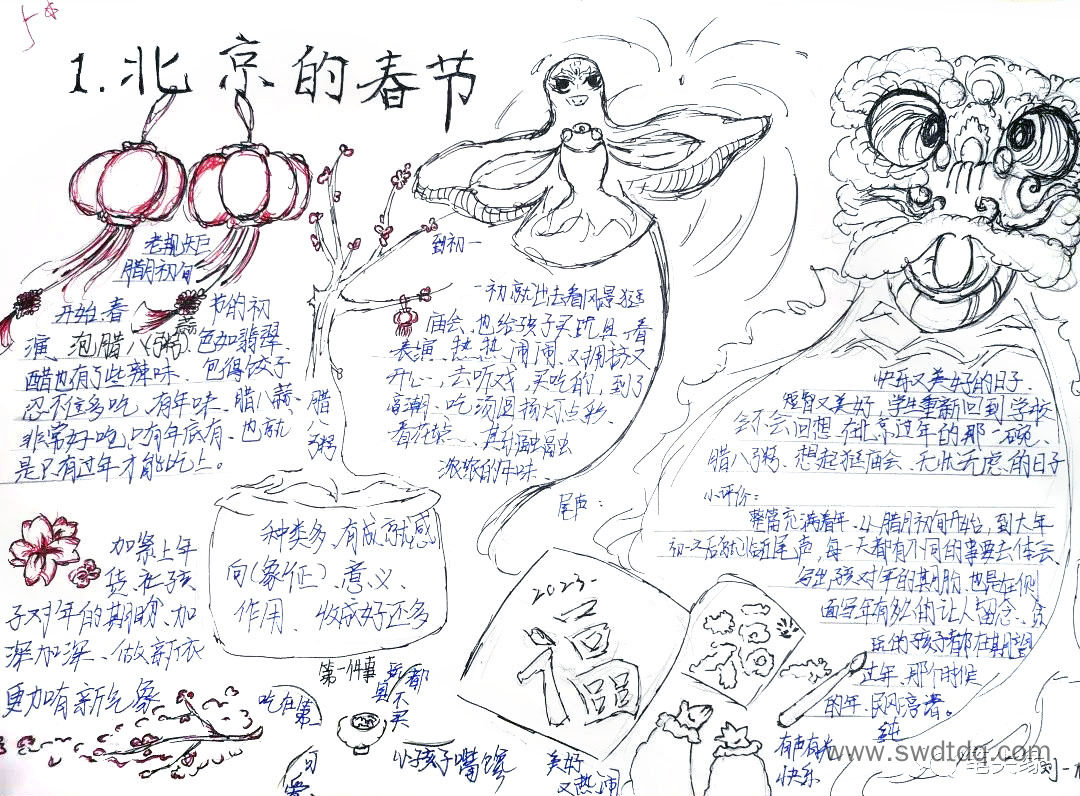 1.北京的春节
老规矩
腊月初旬
开始春节的初
演、泡腊八粥、色如翡翠、
醋也有了些辣味、包得饺子
忍不住多吃、有年味、腊八蒜、
非常好吃只有年底有、也就
是只有过年才能吃上。
腊八粥
到初一
初一就出去看风景逛
庙会、也给孩子买玩具、看
表演、热热闹闹、又拥挤又
开心、去听戏、买吃的、到了
高潮、吃汤圆杨灯点
看花
浓浓的年味
种类多、有成就感
向(象征)、意义、
作用、收成好还多
加紧上年
货、在孩
子对年的期盼、加
深加深、做新衣
更加有新气象
吃在第一
第一件事
都不买
小孩子嘴馋
可爱
美好
又热闹
2023
福
福
尾声:
快乐又美好的日子、
短暂又美好、学生重新回到学校
会不会回想、在北京过年的那一碗、
腊八粥、想起逛庭会、无忧无虑的日子
小评价:
整篇充满着年、从腊月初旬开始,到大年
初一之后就临近尾声,每一天都有不同的事要去体会、
写出孩对年的期盼也是在侧
面写年有多么的让人留念、贪
玩的孩子都在期望
过年、那个时候
的年、民风淳着。
纯
有声有光
快乐
www.swdtdq.com